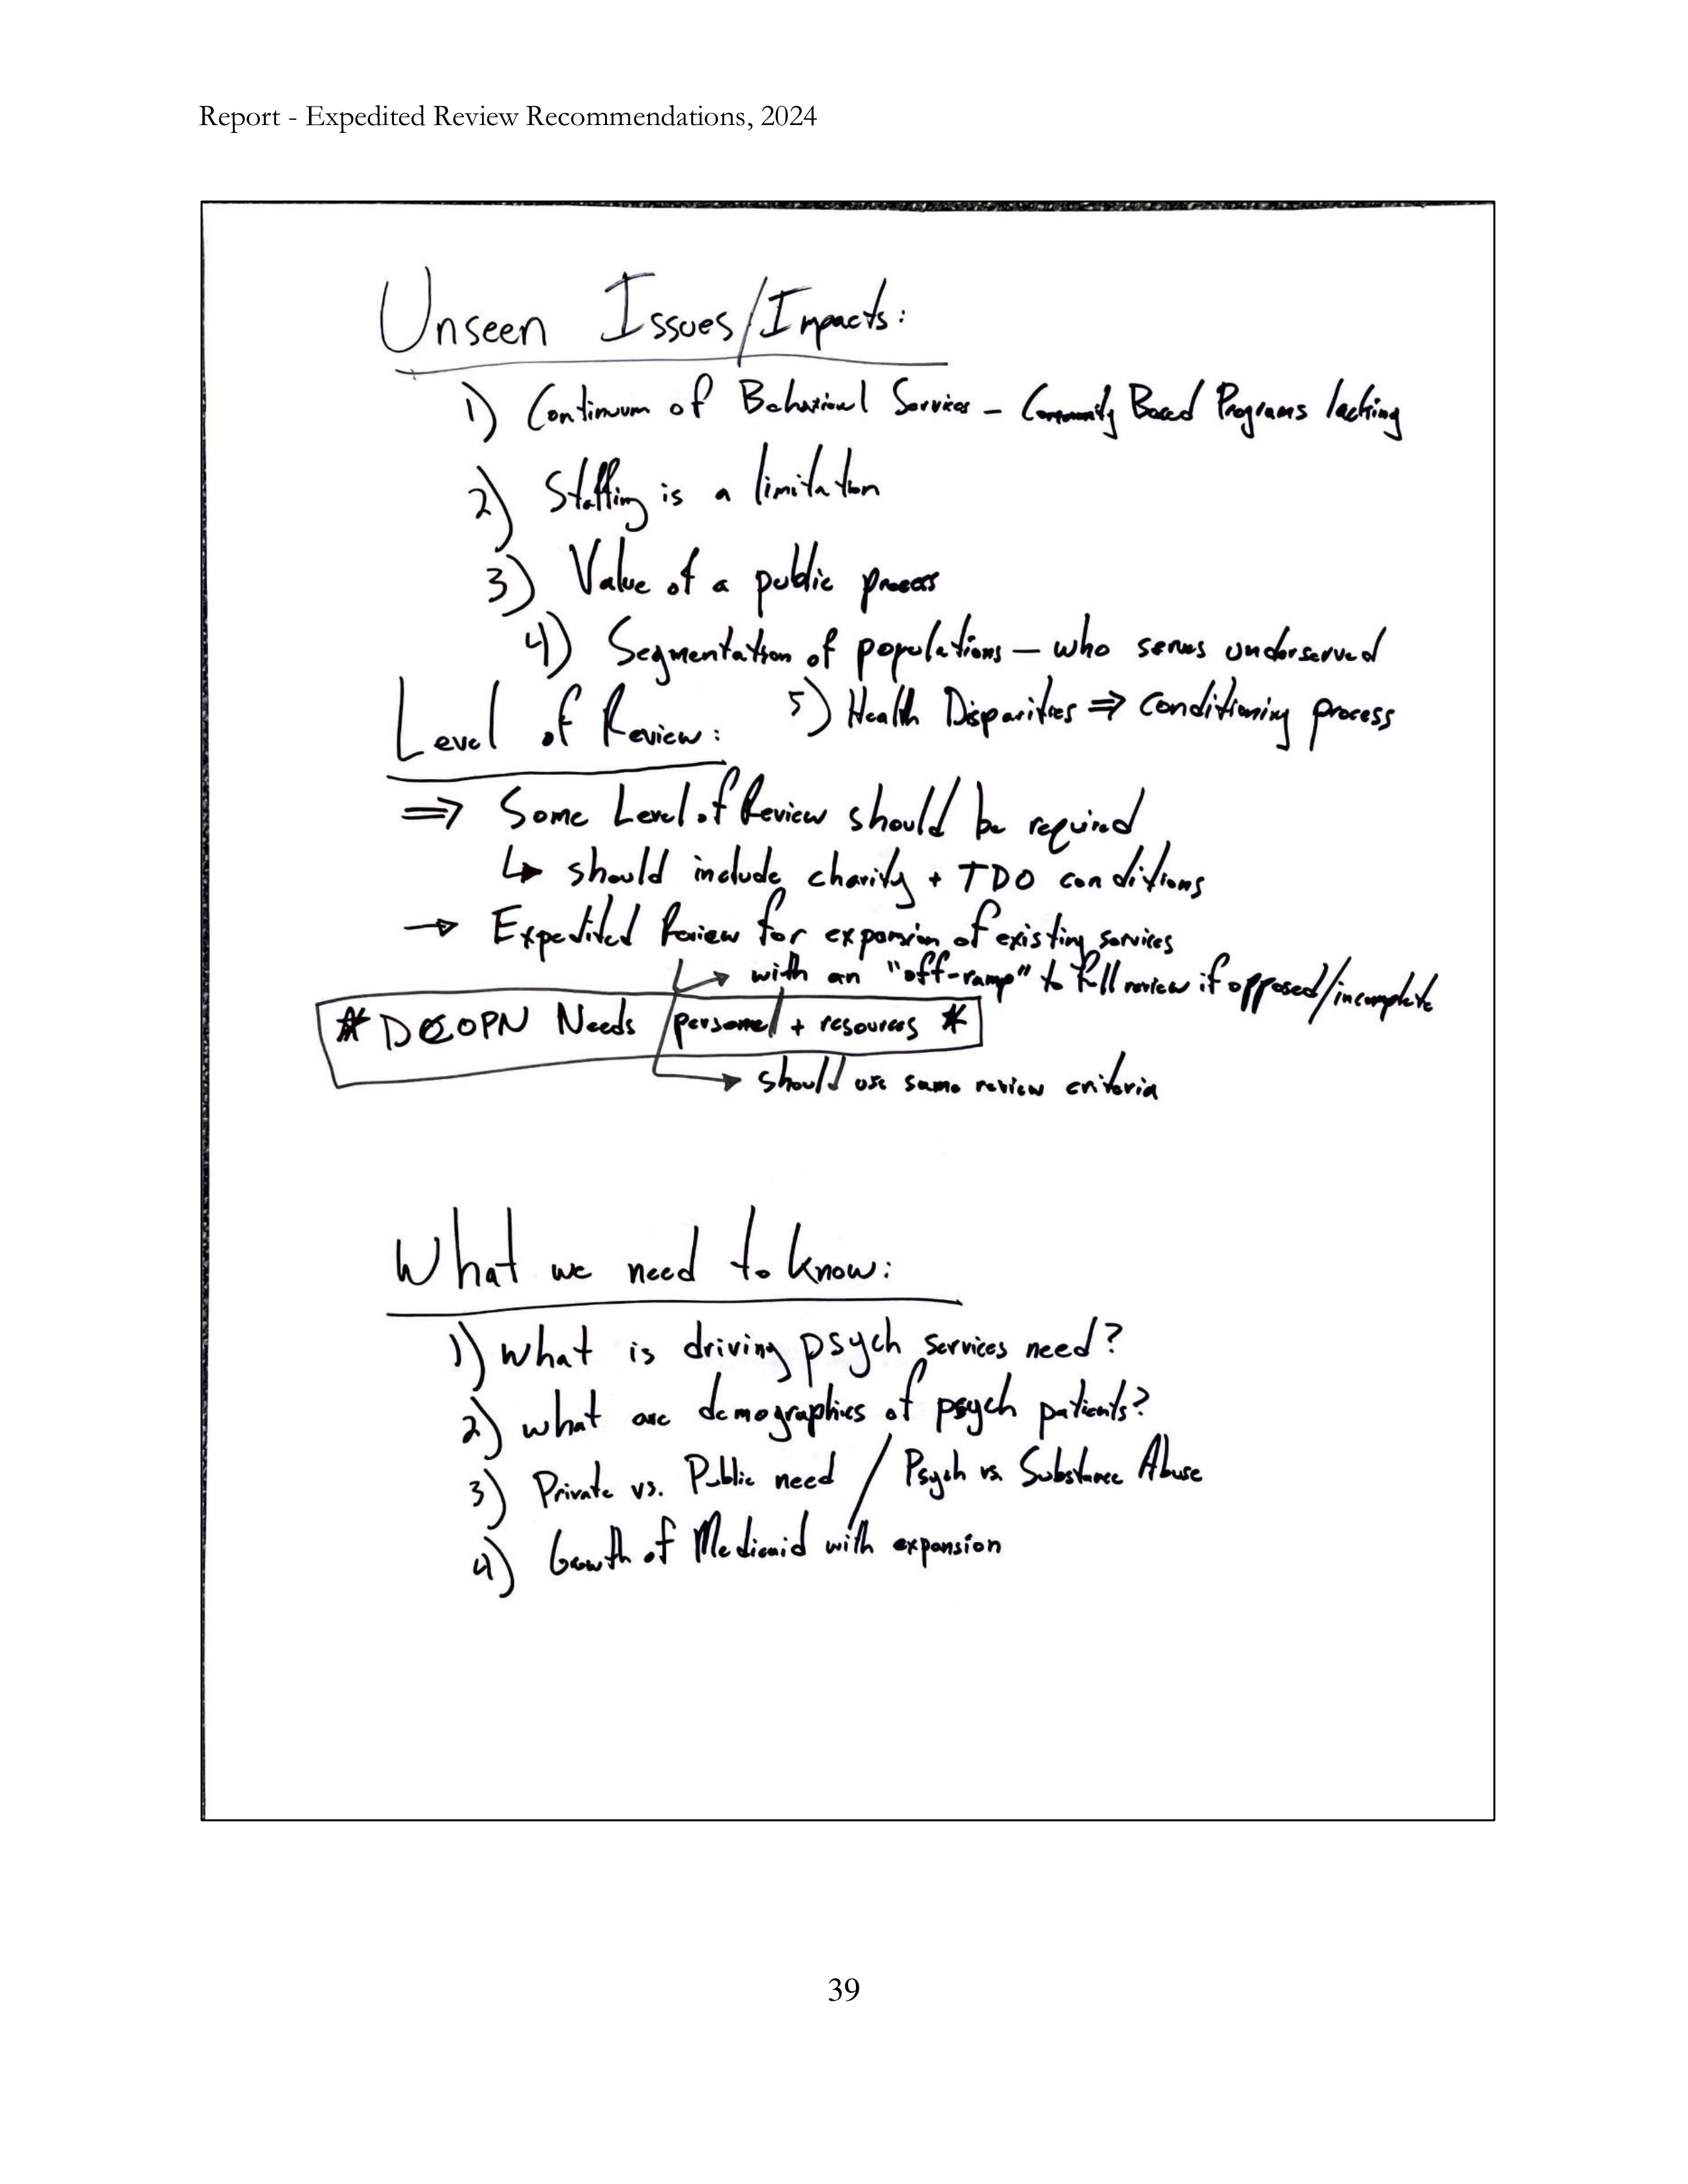 Report - Expedited Review Recommendations, 2024
Unseen Issues/Impacts:
1) Continuum of Behavioral Services – Community Based Programs lacking
2) Staffing is a limitation
3) Value of a public process
4) Segmentation of populations – who serves underserved
5) Health Disparities ⇒ conditioning process
Level of Review:
⇒ Some Level of Review should be required
↳ should include charity + TDO conditions
→ Expedited Review for expansion of existing services
↳ with an "off-ramp" to full review if opposed/incomplete
* DCOPN Needs personnel + resources *
↳ should use same review criteria
What we need to know:
1) what is driving psych services need?
2) what are demographics of psych patients?
3) Private vs. Public need / Psych vs. Substance Abuse
4) Growth of Medicaid with expansion
39